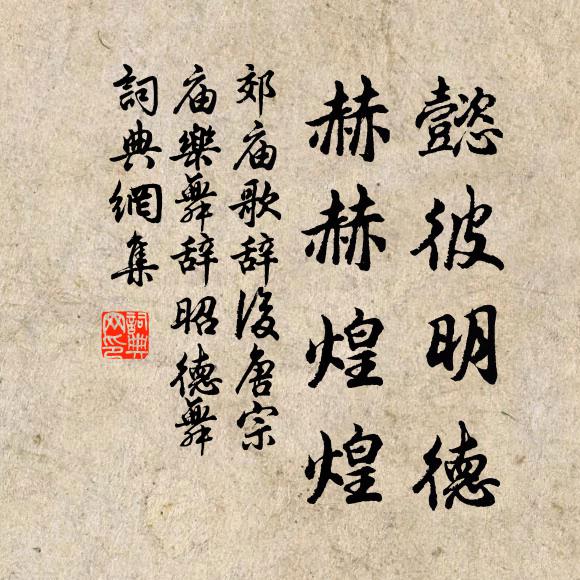 懿彼明德
赫赫煌煌
郊庙歌辞後唐宗
庙樂舞辞昭德舞
詞典網集
詞典
网印